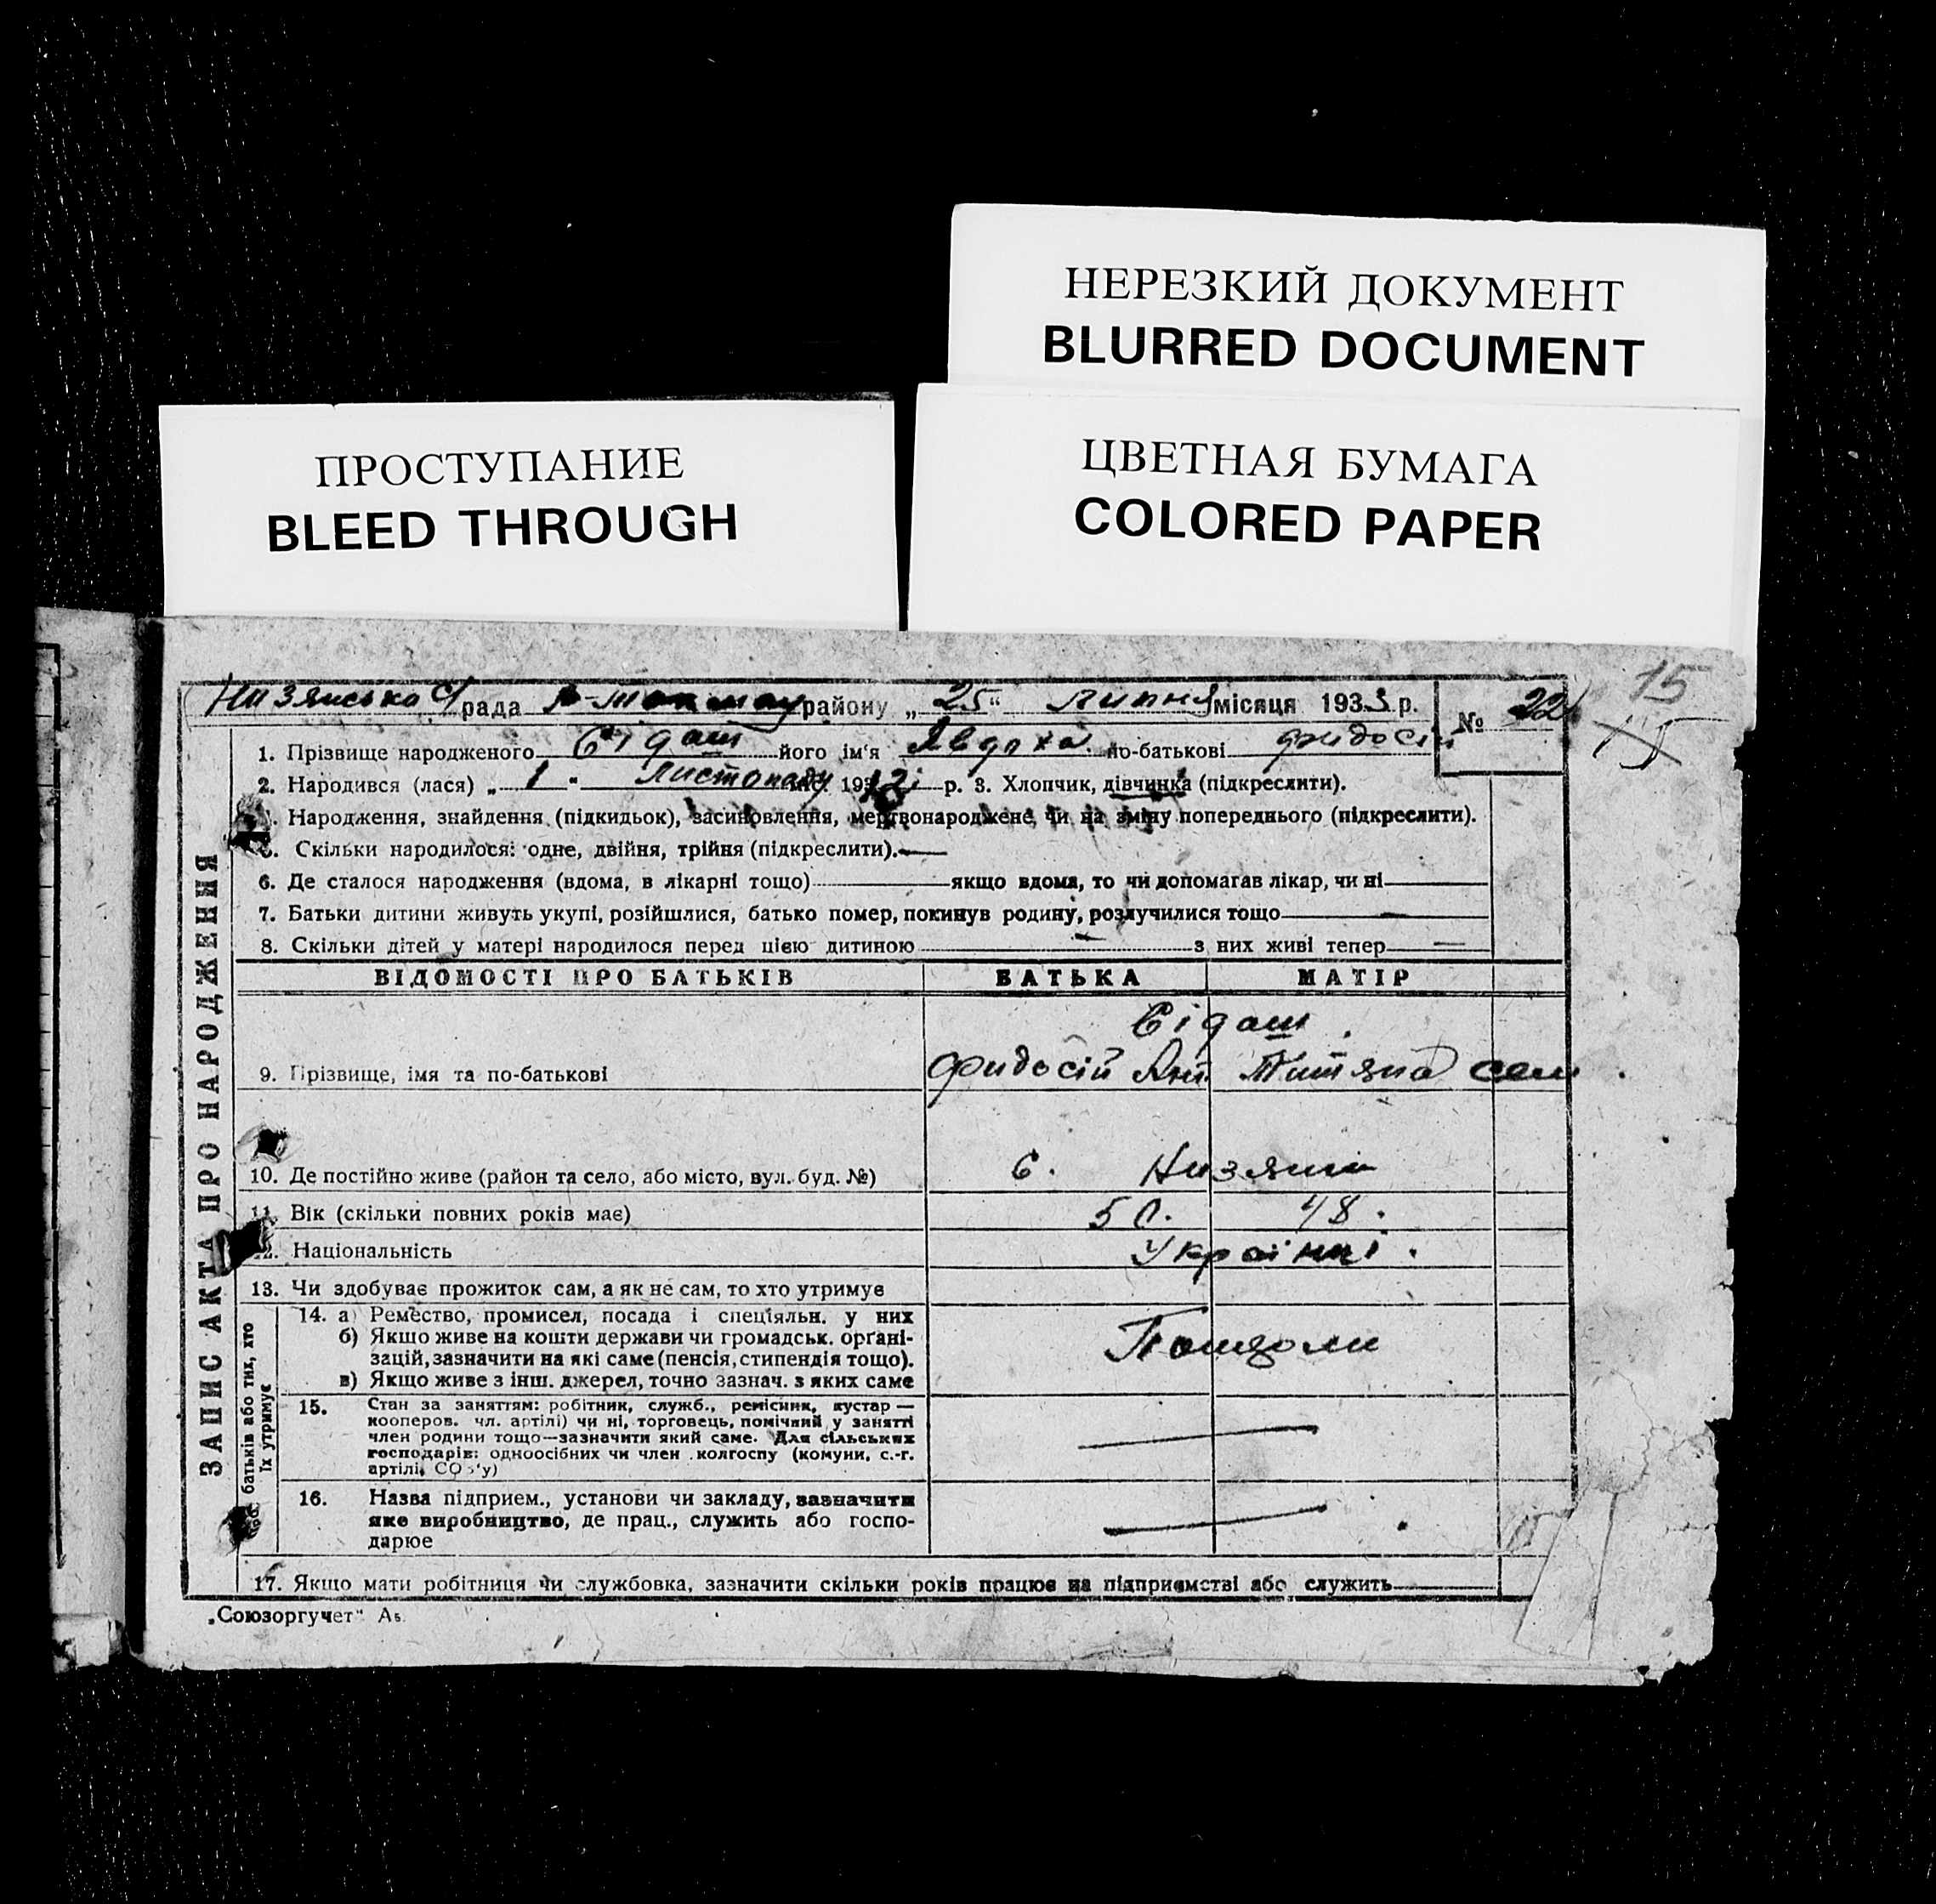 НЕРЕЗКИЙ ДОКУМЕНТ
BLURRED DOCUMENT
ПРОСТУПАНИЕ
BLEED THROUGH
ЦВЕТНАЯ БУМАГА
COLORED PAPER
15
Низянсько с/рада району „25“ липня місяця 1933 р. № 22
1. Прізвище народженого Сідаш його ім'я Явдоха по-батькові Фидосій
2. Народився (лася) „1“ Листопаду р. 3. Хлопчик, дівчинка (підкреслити).
Народження, знайдення (підкидьок), засиновлення, мертвонароджене, чи на зміну попереднього (підкреслити).
Скільки народилося: одне, двійня, трійня (підкреслити).
6. Де сталося народження (вдома, в лікарні тощо) якщо вдома, то чи допомагав лікар, чи ні
7. Батьки дитини живуть укупі, розійшлися, батько помер, покинув родину, розлучилися тощо
8. Скільки дітей у матері народилося перед цією дитиною з них живі тепер
ЗАПИС АКТА ПРО НАРОДЖЕННЯ
ВІДОМОСТІ ПРО БАТЬКІВ БАТЬКА МАТІР
Сідаш
9. Прізвище, імя та по-батькові Фидосій Ант. Титяна сем
10. Де постійно живе (район та село, або місто, вул. буд. №) с. Низяни
11. Вік (скільки повних років має) 50. 48.
12. Національність Українці.
13. Чи здобуває прожиток сам, а як не сам, то хто утримує
батьків або тих, хто
їх утримує
14. а) Ремество, промисел, посада і спеціяльн. у них
б) Якщо живе на кошти держави чи громадськ. органі-
зацій, зазначити на які саме (пенсія, стипендія тощо).
в) Якщо живе з інш. джерел, точно зазнач. з яких саме
15. Стан за заняттям: робітник, служб., ремісник, кустар —
кооперов. чл. артілі) чи ні, торговець, помічний у занятті
член родини тощо—зазначити який саме. Для сільських
господарів: одноосібних чи член колгоспу (комуни, с.-г.
артілі, СОЗ'у)
16. Назва підприєм., установи чи закладу, зазначити
яке виробництво, де прац., служить або госпо-
дарює
17. Якщо мати робітниця чи службовка, зазначити скільки років працює на підприємстві або служить
„Союзоргучет“ А5.